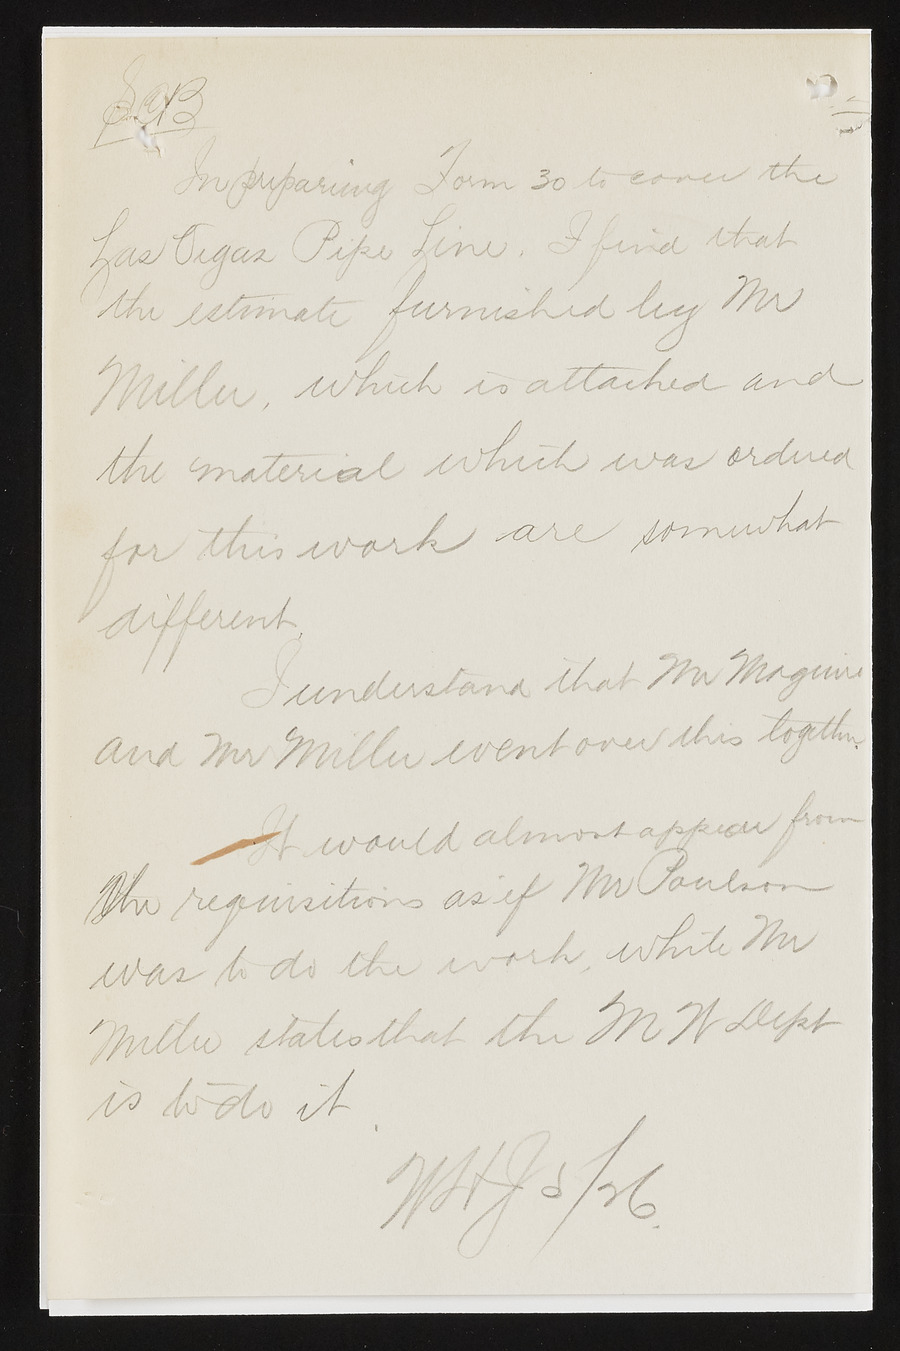 In preparing Form 30 to cover the
Las Vegas Pipe Line. I find that
the estimate furnished by Mr
Miller, which is attached and
the material which was ordered
for this work are somewhat
different.
I understand that Mr Maguire
and Mr Miller went over this together.
It would almost appear from
the requisitions as if Mr Paulson
was to do the work, while Mr
Miller states that the M W Dept
is to do it.
WHJ 5/26.